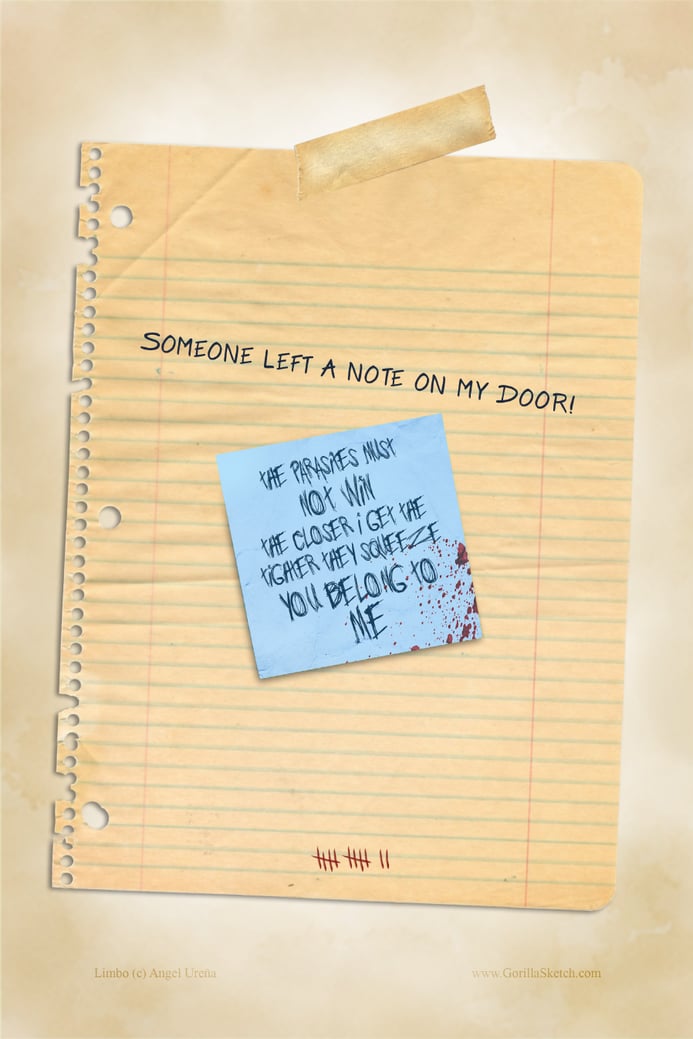 SOMEONE LEFT A NOTE ON MY DOOR!
THE PARASITES MUST
NOT WIN
THE CLOSER i GET THE
TIGHTER THEY SQUEEZE
YOU BELONG TO
ME
Limbo (c) Angel Ureña
www.GorillaSketch.com